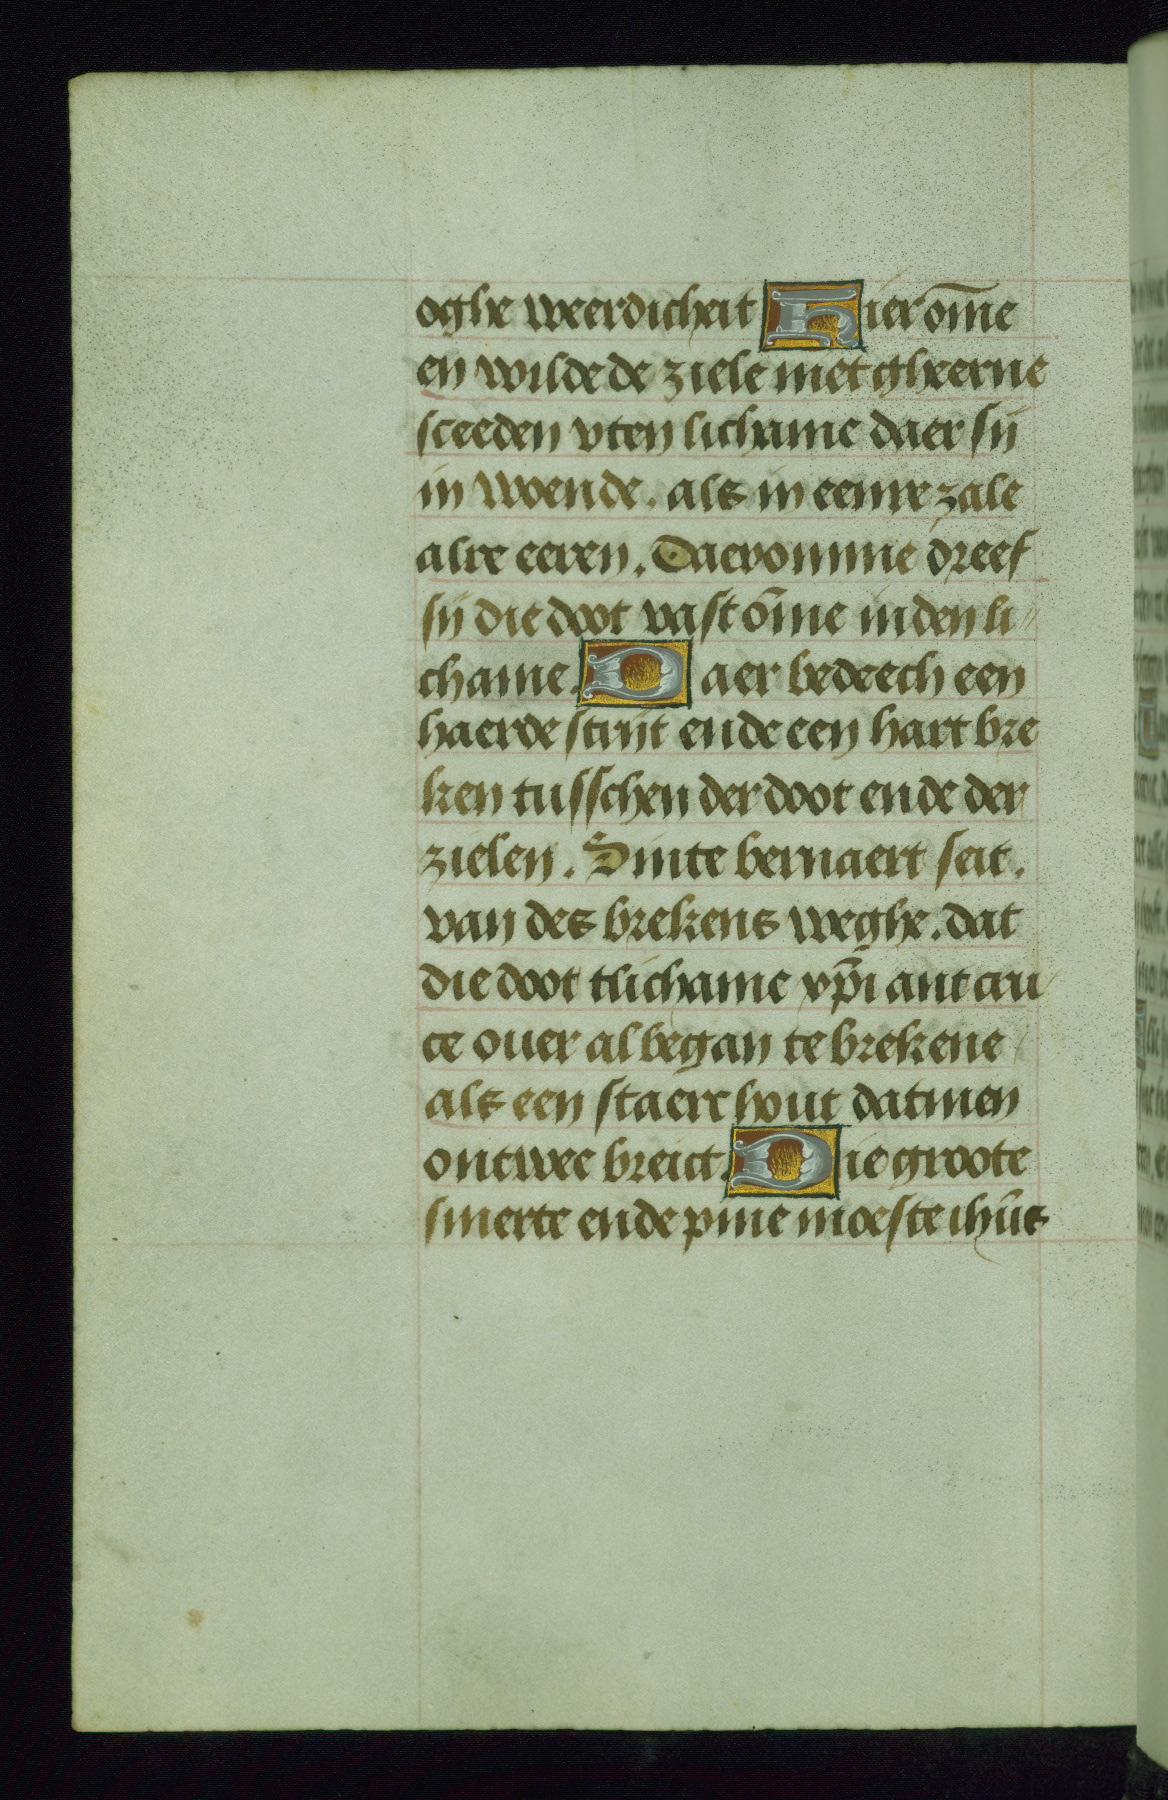 oghe weerdicheit Hier om̄e
en wilde de ziele niet gheerne
sceeden vten lichame daer sij
in woende. als in eenre zale
alre eeren. Daeromme dreef
sij die doot vast om̄e in den li
chame. Daer bedeech een
haerde strijt ende een hart bre
ken tusschen der doot ende der
zielen. Sinte bernaert seit.
van des brekens weghe. dat
die doot tlichame xp̄i ant cru
ce ouer al began te brekene
als een staerc hout datmen
ontwee breict. Die groote
smerte ende pine moeste ihūs